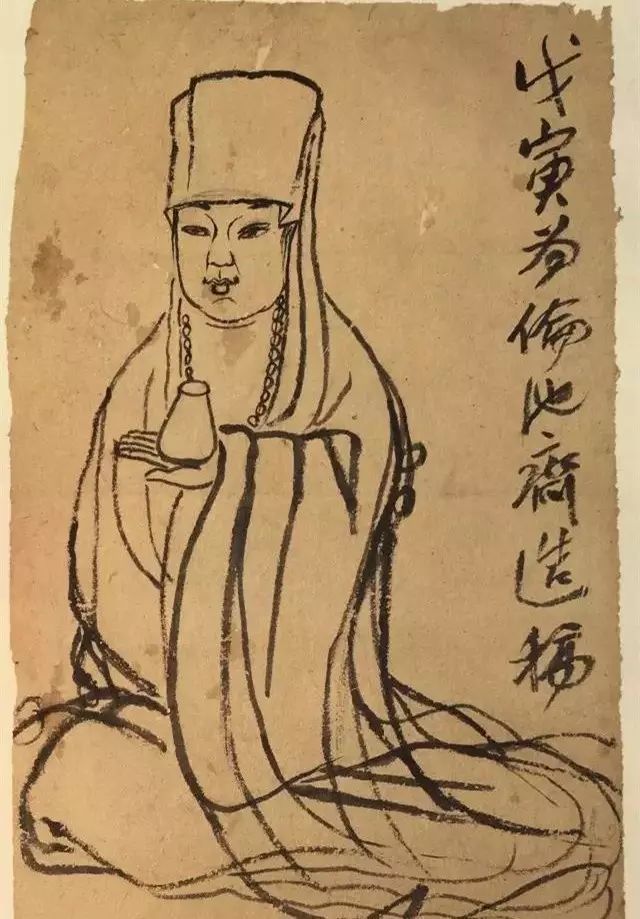 戊寅为倫池齋造稿